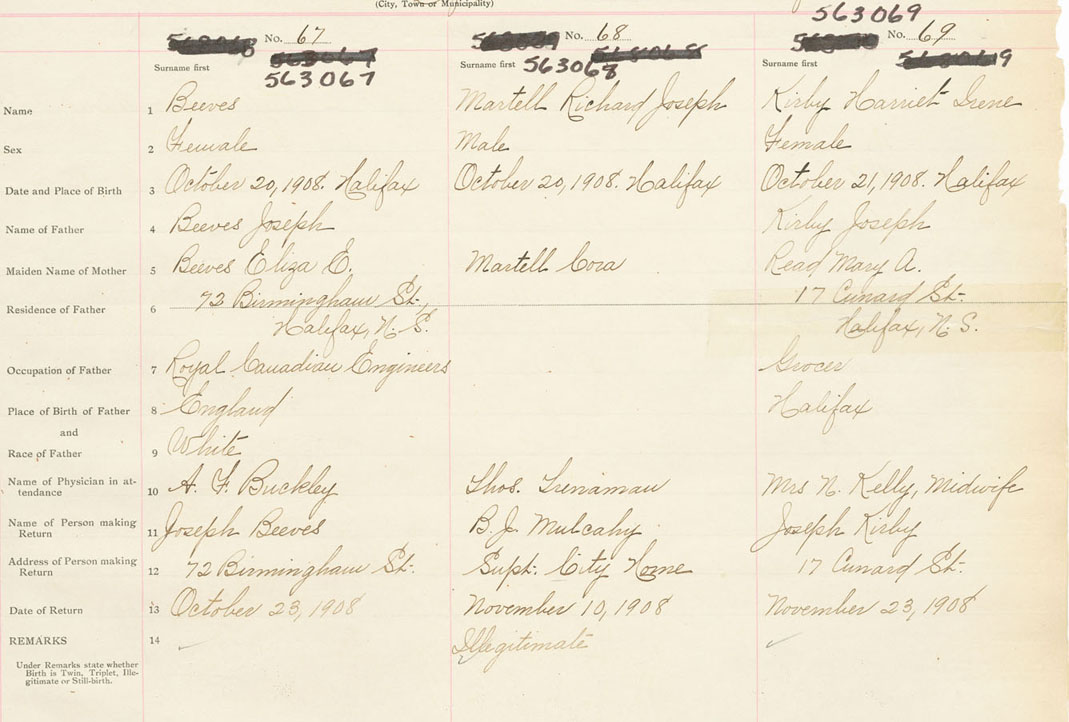 (City, Town or Municipality)
563069
No. 67 No. 68 No. 69
563067 563068
Surname first Surname first Surname first
Name 1 Beeves Martell Richard Joseph Kirby Harriet Irene
Sex 2 Female Male Female
Date and Place of Birth 3 October 20, 1908. Halifax October 20, 1908. Halifax October 21, 1908. Halifax
Name of Father 4 Beeves Joseph Kirby Joseph
Maiden Name of Mother 5 Beeves Eliza E. Martell Cora Read Mary A.
Residence of Father 6 72 Birmingham St., 17 Cunard St.
Halifax, N. S. Halifax, N. S.
Occupation of Father 7 Royal Canadian Engineers Grocer
Place of Birth of Father 8 England Halifax
and
Race of Father 9 White
Name of Physician in at-
tendance 10 A. F. Buckley Thos. Trenaman Mrs N. Kelly, Midwife
Name of Person making
Return 11 Joseph Beeves B. J. Mulcahy Joseph Kirby
Address of Person making
Return 12 72 Birmingham St. Supt. City Home 17 Cunard St.
Date of Return 13 October 23, 1908 November 10, 1908 November 23, 1908
REMARKS 14 Illegitimate
Under Remarks state whether
Birth is Twin, Triplet, Ille-
gitimate or Still-birth.